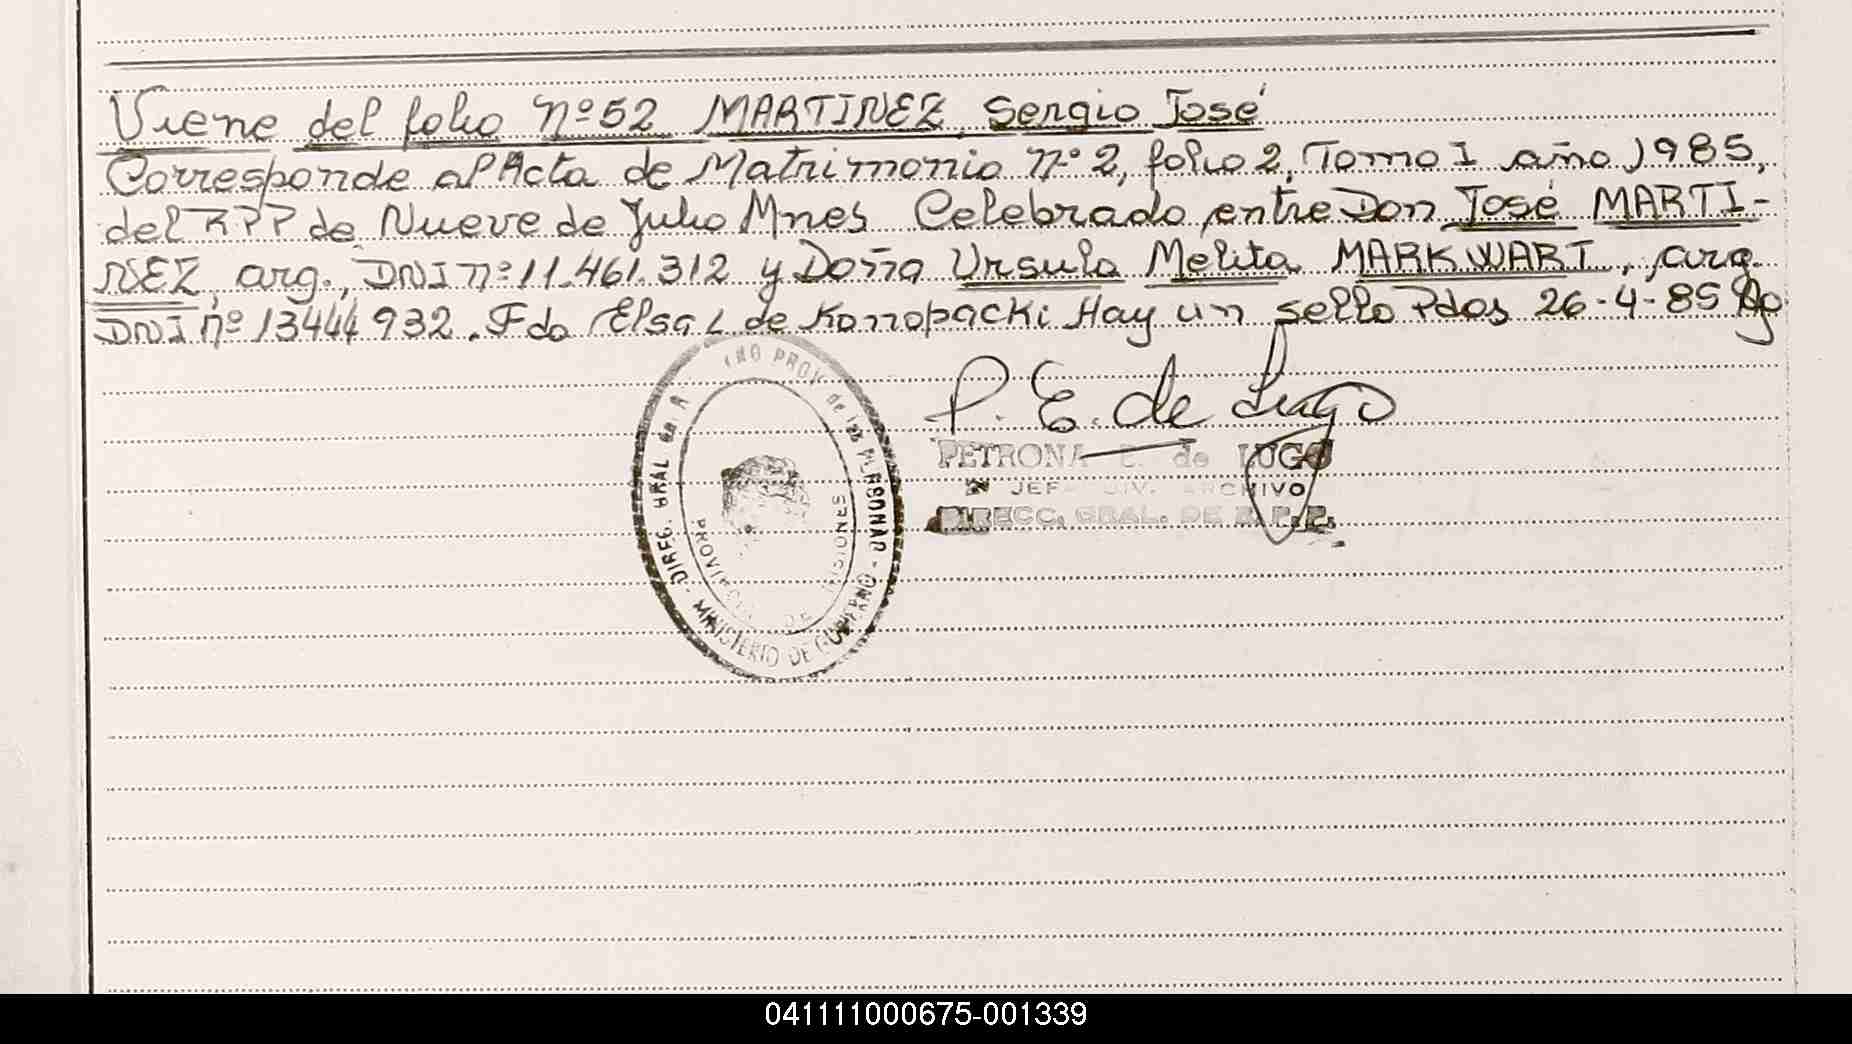 Viene del folio nº 52 MARTINEZ, Sergio José
Corresponde al Acta de Matrimonio nº 2, folio 2, Tomo I año 1985,
del RPP de Nueve de Julio Mnes Celebrado entre Don José MARTI-
NEZ, arg., DNI nº 11.461.312 y Doña Ursula Melita MARKWART, arg.
DNI nº 13444932. Fdo Elsa L de Konopacki Hay un sello Pdas 26-4-85
P. E. de Lugo
PETRONA E. de LUGO
JEF DIV. ARCHIVO
DIRECC. GRAL. DE R.P.P.
DIREC. GRAL de PROV. de las PERSONAS - MINISTERIO DE GOBIERNO -
PROVINCIA DE MISIONES
041111000675-001339